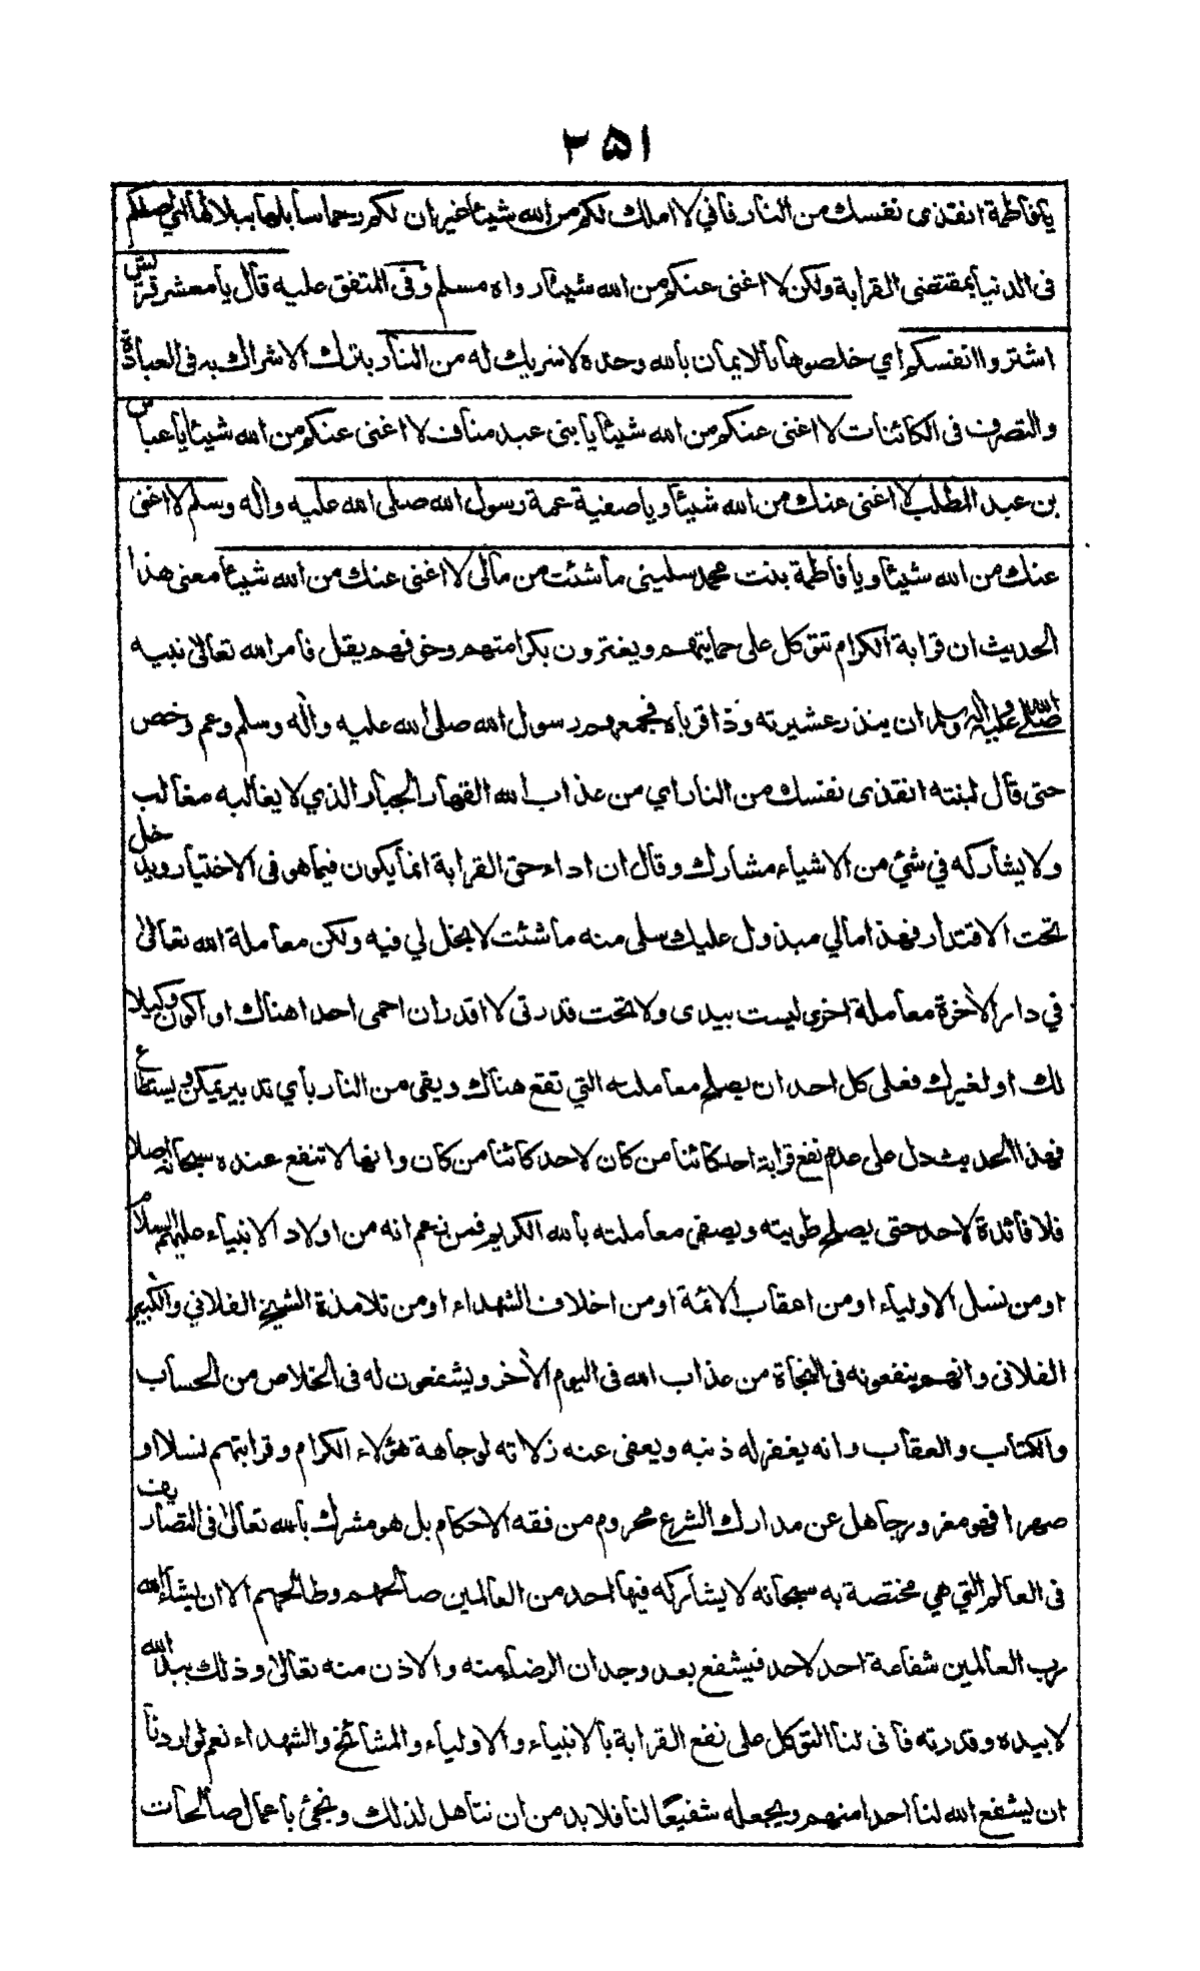 ٢٥١
يا فاطمة انقذى نفسك من النار فاني لا املك لكم من الله شيئا غير ان لكم رحما سابلها ببلالها اي اصلكم
فى الدنيا بمقتضى القرابة ولكن لا اغنى عنكم من الله شيئا رواه مسلم وفى المتفق عليه قال يا معشر قريش
اشتروا انفسكم اي خلصوها بالايمان بالله وحده لا شريك له من النار بترك الاشراك به فى العبادة
والتصرف فى الكائنات لا اغنى عنكم من الله شيئا يا بنى عبد مناف لا اغنى عنكم من الله شيئا يا عباس
بن عبد المطلب لا اغنى عنك من الله شيئا ويا صفية عمة رسول الله صلى الله عليه واٰله وسلم لا اغنى
عنك من الله شيئا ويا فاطمة بنت محمد سلينى ما شئت من مالى لا اغنى عنك من الله شيئا معنى هذا
الحديث ان قرابة الكرام تتوكل على حمايتهم ويغترون بكرامتهم وخوفهم يقل فامر الله تعالىٰ نبيه
صلى الله عليه واٰله وسلم ان ينذر عشيرته وذا قرباه فجمعهم رسول الله صلى الله عليه واٰله وسلم وعم وخص
حتى قال لبنته انقذى نفسك من النار اي من عذاب الله القهار الجبار الذي لا يغالبه مغالب
ولا يشاركه في شئ من الاشياء مشارك وقال ان اداء حق القرابة انما يكون فيما هو فى الاختيار ويدخل
تحت الاقتدار فهذا مالي مبذول عليك سلى منه ما شئت لا بخل لي فيه ولكن معاملة الله تعالىٰ
في دار الاٰخرة معاملة اخرى ليست بيدى ولا تحت قدرتى لا اقدر ان احمى احدا هناك او اكون وكيلا
لك او لغيرك فعلى كل احد ان يصلح معاملته التي تقع هناك ويقى من النار بأي تدبير يمكن ويستطاع
فهذا الحديث دل على عدم نفع قرابة احد كائنا من كان لاحد كائنا من كان وانها لا تنفع عنده سبحانه اصلا
فلا فائدة لاحد حتى يصلح طويته ويصفى معاملته بالله الكريم فمن زعم انه من اولاد الانبياء عليهم السلام
او من نسل الاولياء او من اعقاب الائمة او من اخلاف الشهداء او من تلامذة الشيخ الفلاني والكبير
الفلانى وانهم ينفعونه فى النجاة من عذاب الله فى اليوم الاٰخر ويشفعون له فى الخلاص من الحساب
والكتاب والعقاب وانه يغفر له ذنبه ويعفى عنه زلاته لوجاهة هؤلاء الكرام وقرابتهم نسلا او
صهرا فهو مغرور جاهل عن مدارك الشرع محروم من فقه الاحكام بل هو مشرك بالله تعالىٰ فى التصاريف
فى العالم التي هي مختصة به سبحانه لا يشاركه فيها احد من العالمين صالحهم وطالحهم الا ان يشاء الله
رب العالمين شفاعة احد لاحد فيشفع بعد وجدان الرضاء منه والاذن منه تعالىٰ وذلك بيد الله
لا بيده وقدرته فانى لنا التوكل على نفع القرابة بالانبياء والاولياء والمشائخ والشهداء نعم لو اردنا
ان يشفع الله لنا احدا منهم ويجعله شفيعًا لنا فلا بد من ان نتاهل لذلك ونجئ باعمال صالحات